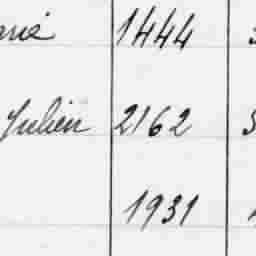 1444
Julien 2162
1931